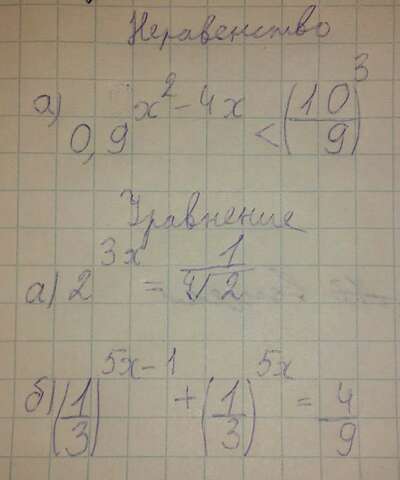 Неравенство
а) 0,9^(x²-4x) < (10/9)³
Уравнение
а) 2^(3x) = 1/∜2
б) (1/3)^(5x-1) + (1/3)^(5x) = 4/9